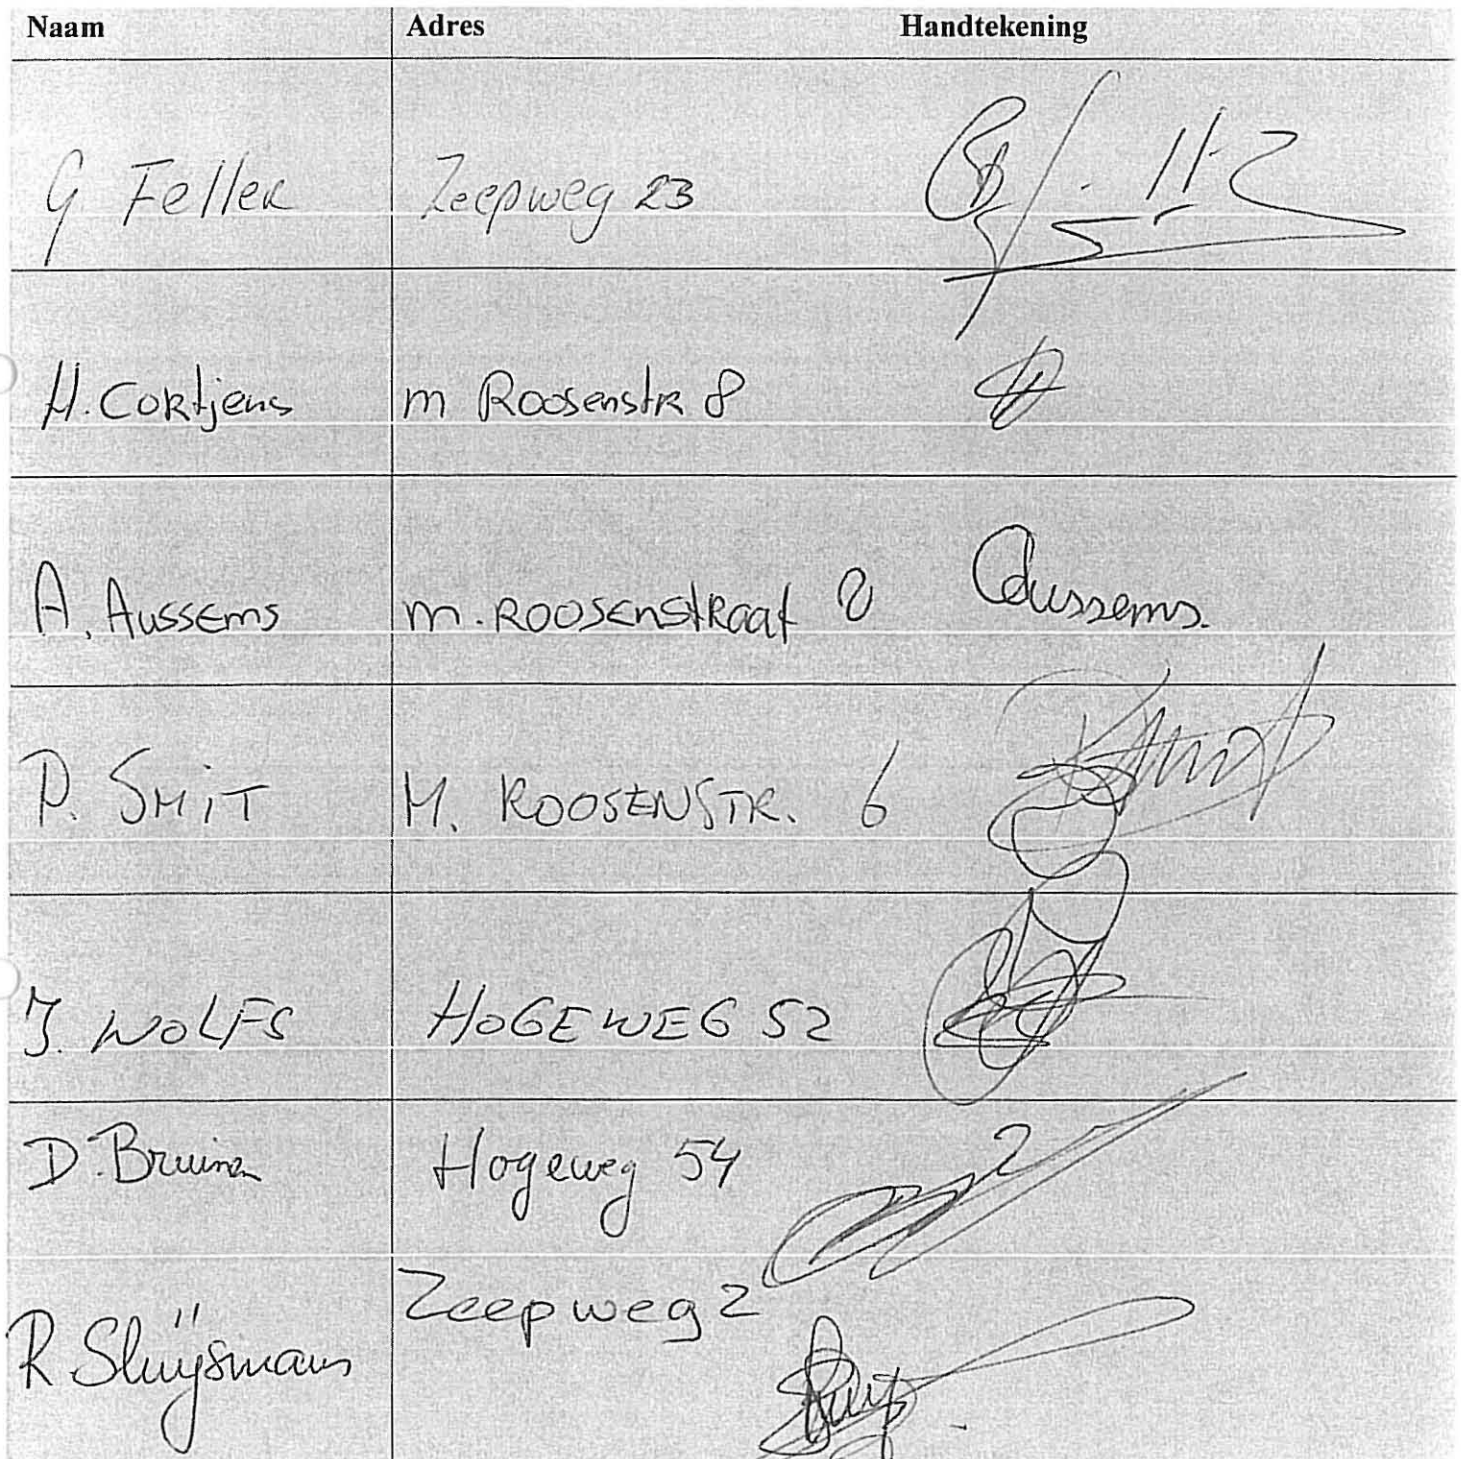 Naam Adres Handtekening
G Feller Zeepweg 23
H. Cortjens m Roosenstr 8
A. Aussems m. Roosenstraat 8 Aussems.
P. SMiT M. ROOSENSTR. 6
J. WOLFS HOGEWEG 52
D. Bruinen Hogeweg 54
R Sluijsmans Zeepweg 2